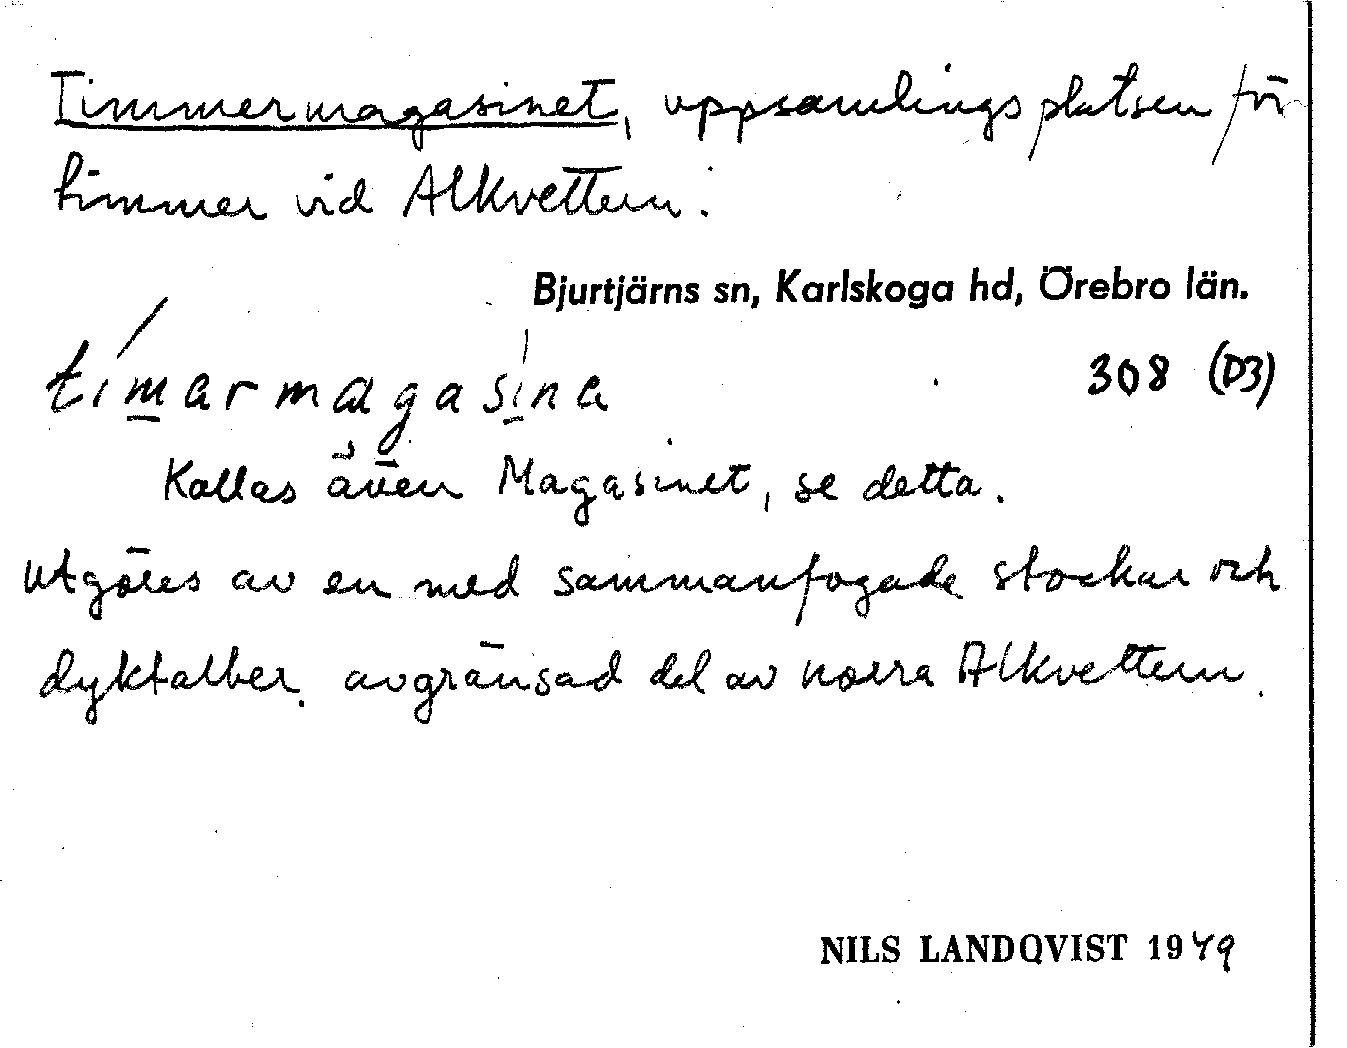 Timmermagasinet, uppsamlingsplatsen för
timmer vid Alkvettern.
Bjurtjärns sn, Karlskoga hd, Örebro län.
timarmagasina
308 (D3)
Kallas även Magasinet, se detta.
Utgöres av en med sammanfogade stockar och
dyktalber avgränsad del av norra Alkvettern.
NILS LANDQVIST 1949